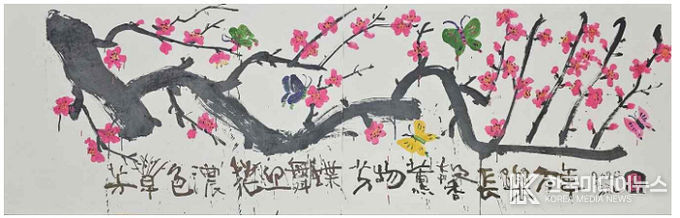 芳草色濃 花迎舞蝶 芳物薰馨 長樂万年
한국미디어뉴스
KOREA MEDIA NEWS